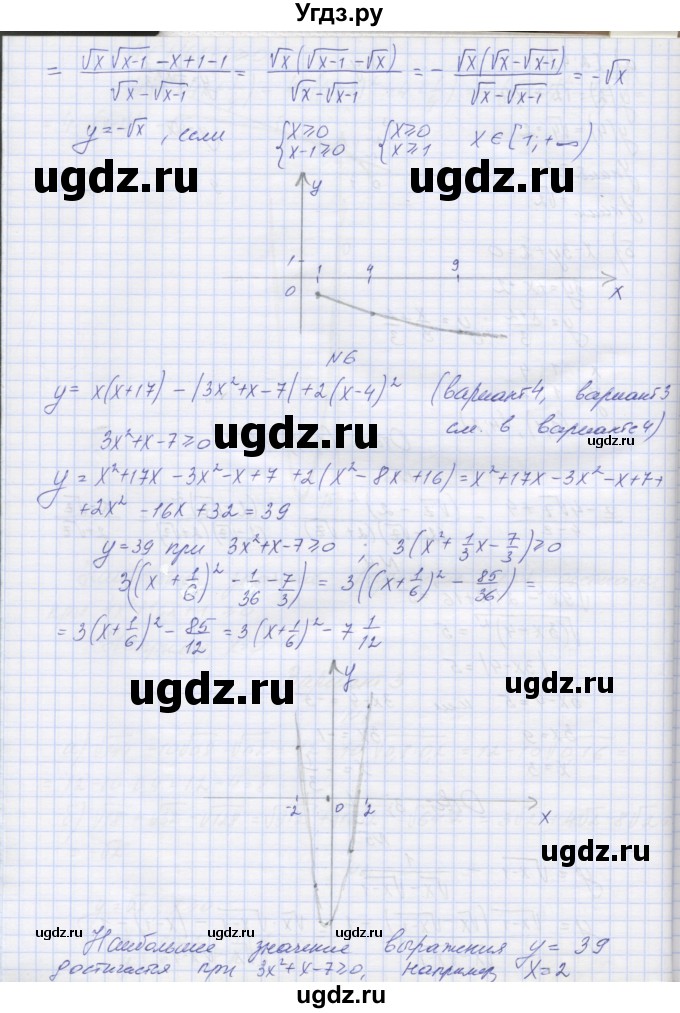 Угдз.ру
= (√x √x-1 - x + 1 - 1)/(√x - √x-1) = √x(√x-1 - √x)/(√x - √x-1) = - √x(√x - √x-1)/(√x - √x-1) = -√x
y = -√x, если {x ≥ 0 {x ≥ 0 x ∈ [1; +∞)
{x-1 ≥ 0 {x ≥ 1
ugdz.ru ugdz.ru
y
1
1 4 9
0 x
ugdz.ru
N6
y = x(x+17) - |3x²+x-7| + 2(x-4)² (вариант 4, вариант 3
см. в варианте 4)
ugdz.ru ugdz.ru
3x²+x-7 ≥ 0
y = x²+17x - 3x² - x + 7 + 2(x² - 8x + 16) = x²+17x - 3x² - x + 7 +
+ 2x² - 16x + 32 = 39
y = 39 при 3x²+x-7 ≥ 0 ; 3(x² + 1/3 x - 7/3) ≥ 0
3((x + 1/6)² - 1/36 - 7/3) = 3((x + 1/6)² - 85/36) =
= 3(x + 1/6)² - 85/12 = 3(x + 1/6)² - 7 1/12
ugdz.ru ugdz.ru
y
-2 0 2
x
ugdz.ru
ugdz.ru ugdz.ru ugdz.ru
Наибольшее значение выражения y = 39
достигается при 3x²+x-7 ≥ 0, например x = 2
ugdz.ru